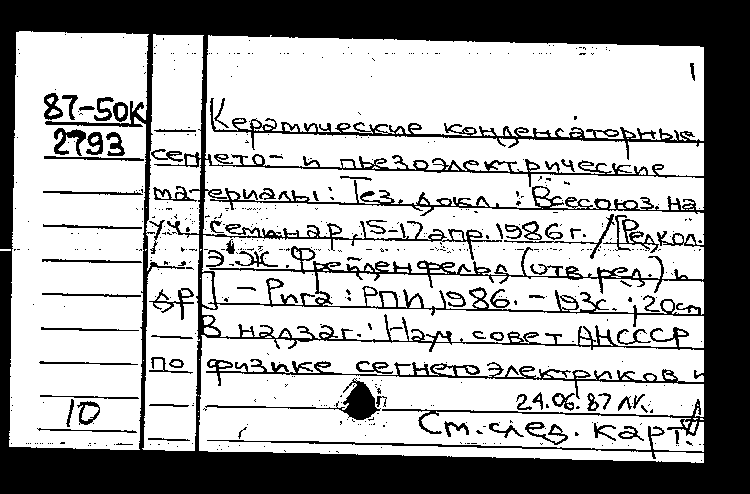 1
87-50К
2793
Керамические конденсаторные,
сегнето- и пьезоэлектрические
материалы: Тез. докл. : Всесоюз. на
уч. семинар, 15-17 апр. 1986 г. / [Редкол.
... Э.Ж. Фрейденфельд (отв. ред.) и
др]. - Рига : РПИ, 1986. - 193с. ; 20см
В надзаг.: Науч. совет АНСССР
по физике сегнетоэлектриков и
24.06.87 ЛК.
10
См. след. карт.